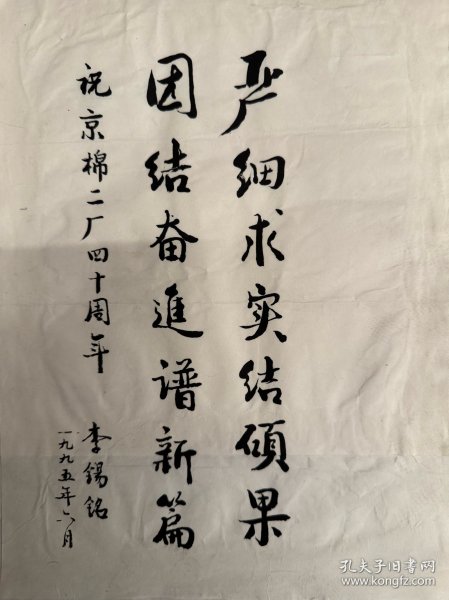 严细求实结硕果
团结奋進谱新篇
祝京棉二厂四十周年
李锡铭
一九九五年六月
孔夫子旧书网
www.kongfz.com